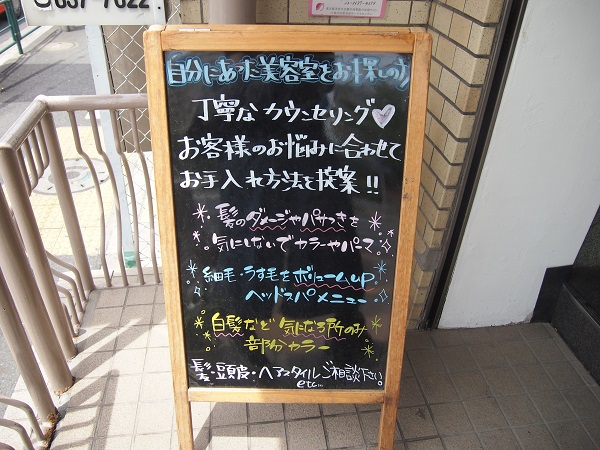 657-7622
自分にあった美容室をお探しの方
丁寧なカウンセリング♡
お客様のお悩みに合わせて
お手入れ方法を提案!!
髪のダメージやパサつきを
気にしないでカラーやパーマ
細毛・うす毛をボリュームup
ヘッドスパメニュー
白髪など気になる所のみ
部分カラー
髪・頭皮・ヘアスタイルご相談下さい
etc...